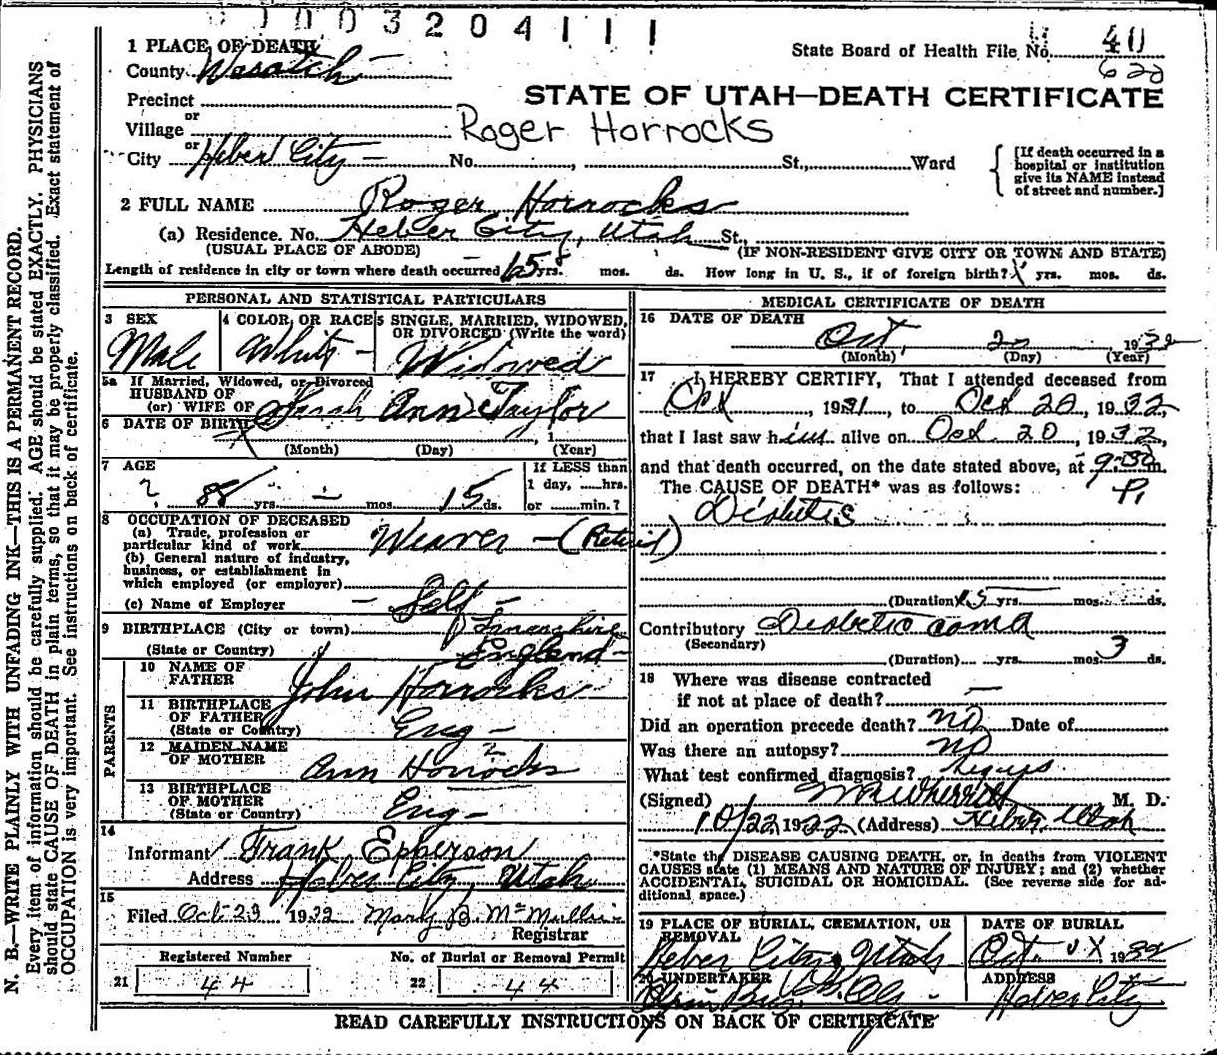 0003204111
State Board of Health File No. 40
620
1 PLACE OF DEATH
County Wasatch
STATE OF UTAH—DEATH CERTIFICATE
Precinct
or
Village
Roger Horrocks
or
City Heber City – No. , St., Ward
[If death occurred in a hospital or institution give its NAME instead of street and number.]
2 FULL NAME Roger Horrocks
(a) Residence. No. Heber City, Utah St.,
(USUAL PLACE OF ABODE) (IF NON-RESIDENT GIVE CITY OR TOWN AND STATE)
Length of residence in city or town where death occurred 65 yrs. mos. ds. How long in U. S., if of foreign birth? yrs. mos. ds.
PERSONAL AND STATISTICAL PARTICULARS
3 SEX
Male
4 COLOR OR RACE
White –
5 SINGLE, MARRIED, WIDOWED, OR DIVORCED (Write the word)
Widowed
5a If Married, Widowed, or Divorced
HUSBAND OF
(or) WIFE OF Sarah Ann Taylor
6 DATE OF BIRTH , 1
(Month) (Day) (Year)
7 AGE
? 88 yrs. – mos. 15 ds.
If LESS than
1 day, hrs.
or min.?
8 OCCUPATION OF DECEASED
(a) Trade, profession or
particular kind of work Weaver – (Retired)
(b) General nature of industry,
business, or establishment in
which employed (or employer)
(c) Name of Employer – Self –
9 BIRTHPLACE (City or town)
(State or Country) England –
PARENTS
10 NAME OF
FATHER John Horrocks
11 BIRTHPLACE
OF FATHER Eng –
(State or Country)
12 MAIDEN NAME
OF MOTHER Ann Horrocks ?
13 BIRTHPLACE
OF MOTHER Eng –
(State or Country)
14
Informant Frank Epperson
Address Heber City, Utah
15
Filed Oct 23 1932 Mary B. McMullin
Registrar
Registered Number
21 44
No. of Burial or Removal Permit
22 44
MEDICAL CERTIFICATE OF DEATH
16 DATE OF DEATH
Oct, 20 1932
(Month) (Day) (Year)
17 I HEREBY CERTIFY, That I attended deceased from
Oct , 1931, to Oct 20, 1932,
that I last saw him alive on Oct 20, 1932,
and that death occurred, on the date stated above, at 9:30 m.
P.
The CAUSE OF DEATH* was as follows:
Diabetis
(Duration) 15 yrs. mos. ds.
Contributory Diabetic coma
(Secondary)
(Duration) yrs. mos. 3 ds.
18 Where was disease contracted
if not at place of death? –
Did an operation precede death? no Date of
Was there an autopsy? no
What test confirmed diagnosis?
(Signed) M. D.
10/22, 1932 (Address) Heber, Utah
*State the DISEASE CAUSING DEATH, or, in deaths from VIOLENT
CAUSES state (1) MEANS AND NATURE OF INJURY; and (2) whether
ACCIDENTAL, SUICIDAL OR HOMICIDAL. (See reverse side for ad-
ditional space.)
19 PLACE OF BURIAL, CREMATION, OR
REMOVAL
Heber City, Utah
DATE OF BURIAL
Oct. 1932
20 UNDERTAKER
ADDRESS
Heber City
READ CAREFULLY INSTRUCTIONS ON BACK OF CERTIFICATE
N. B.—WRITE PLAINLY WITH UNFADING INK—THIS IS A PERMANENT RECORD.
Every item of information should be carefully supplied. AGE should be stated EXACTLY. PHYSICIANS
should state CAUSE OF DEATH in plain terms, so that it may be properly classified. Exact statement of
OCCUPATION is very important. See instructions on back of certificate.